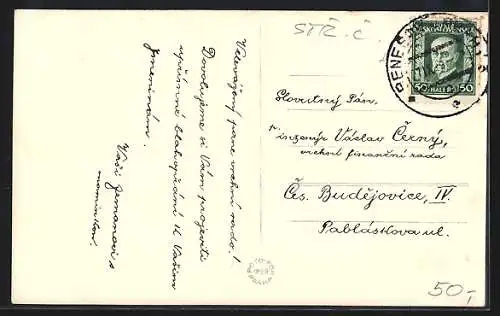 STŘ. Č.
Velevážený pane vrchní rado!
Dovolujeme si Vám projeviti
upřímné blahopřání k Vašim
jmeninám.
Vaši Zemanovi s
maminkou.
Slovutný Pán
inženýr Václav Černý,
vrchní finanční rada
Čes. Budějovice, IV.
Pabláskova ul.
50 HALÉŘŮ 50
BENEŠ
50,-